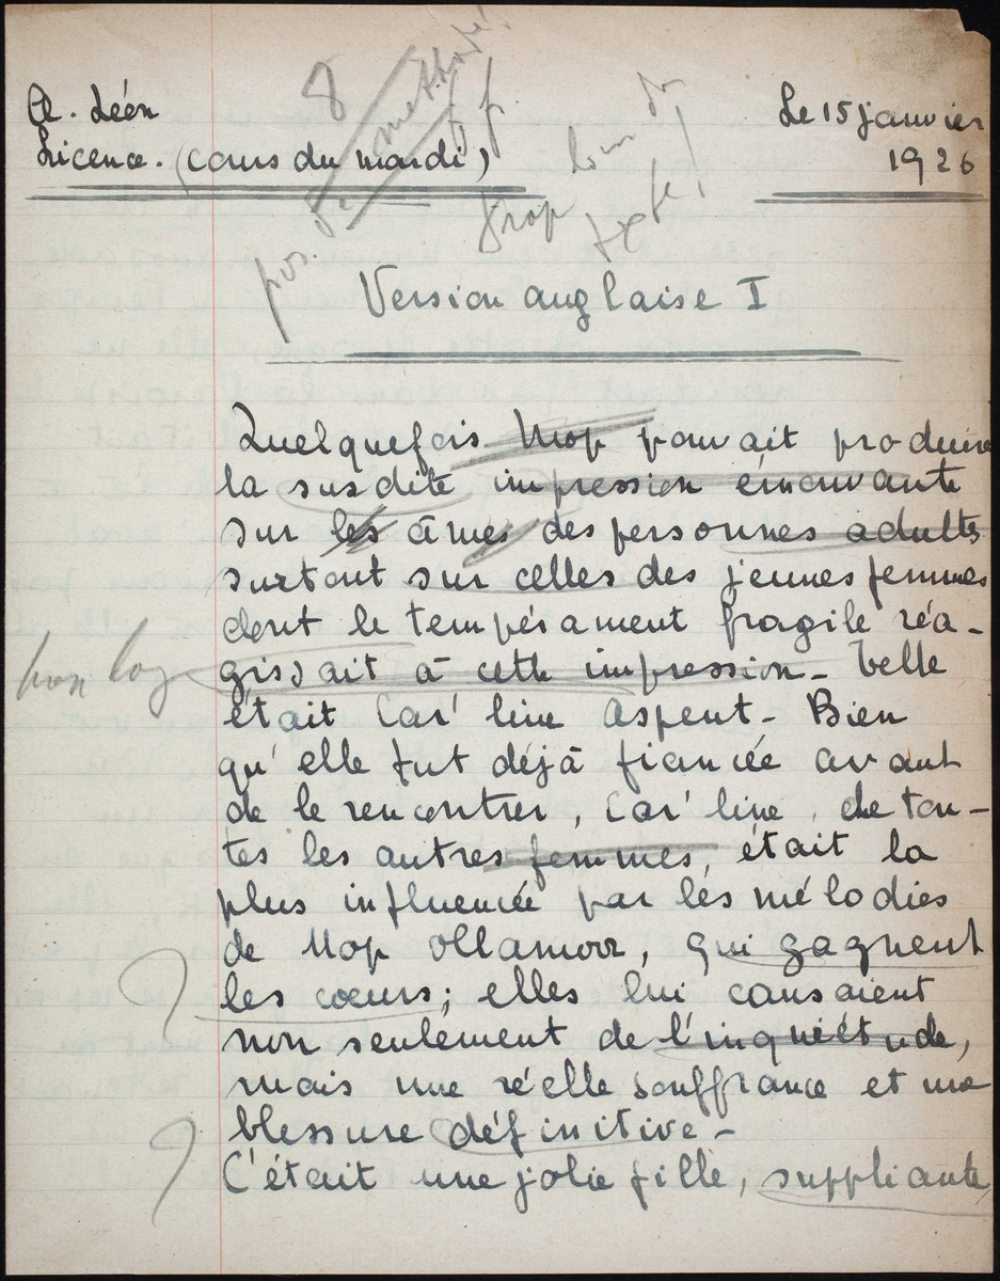 Cl. Léon
Le 15 janvier
Licence. (cours du mardi)
1926
8
pas de méthode!
trop loin du
texte!
Version anglaise I
Quelquefois Mop pouvait produire
la susdite impression émouvante
sur les âmes des personnes adultes
surtout sur celles des jeunes femmes
dont le tempérament fragile réa-
gissait à cette impression - Telle
était Car'line Aspent - Bien
qu'elle fut déjà fiancée avant
de le rencontrer, Car'line, de tou-
tes les autres femmes, était la
plus influencée par les mélodies
de Mop Ollamoor, qui gagnent
les cœurs; elles lui causaient
non seulement de l'inquiétude,
mais une réelle souffrance et une
blessure définitive -
C'était une jolie fille, suppliante